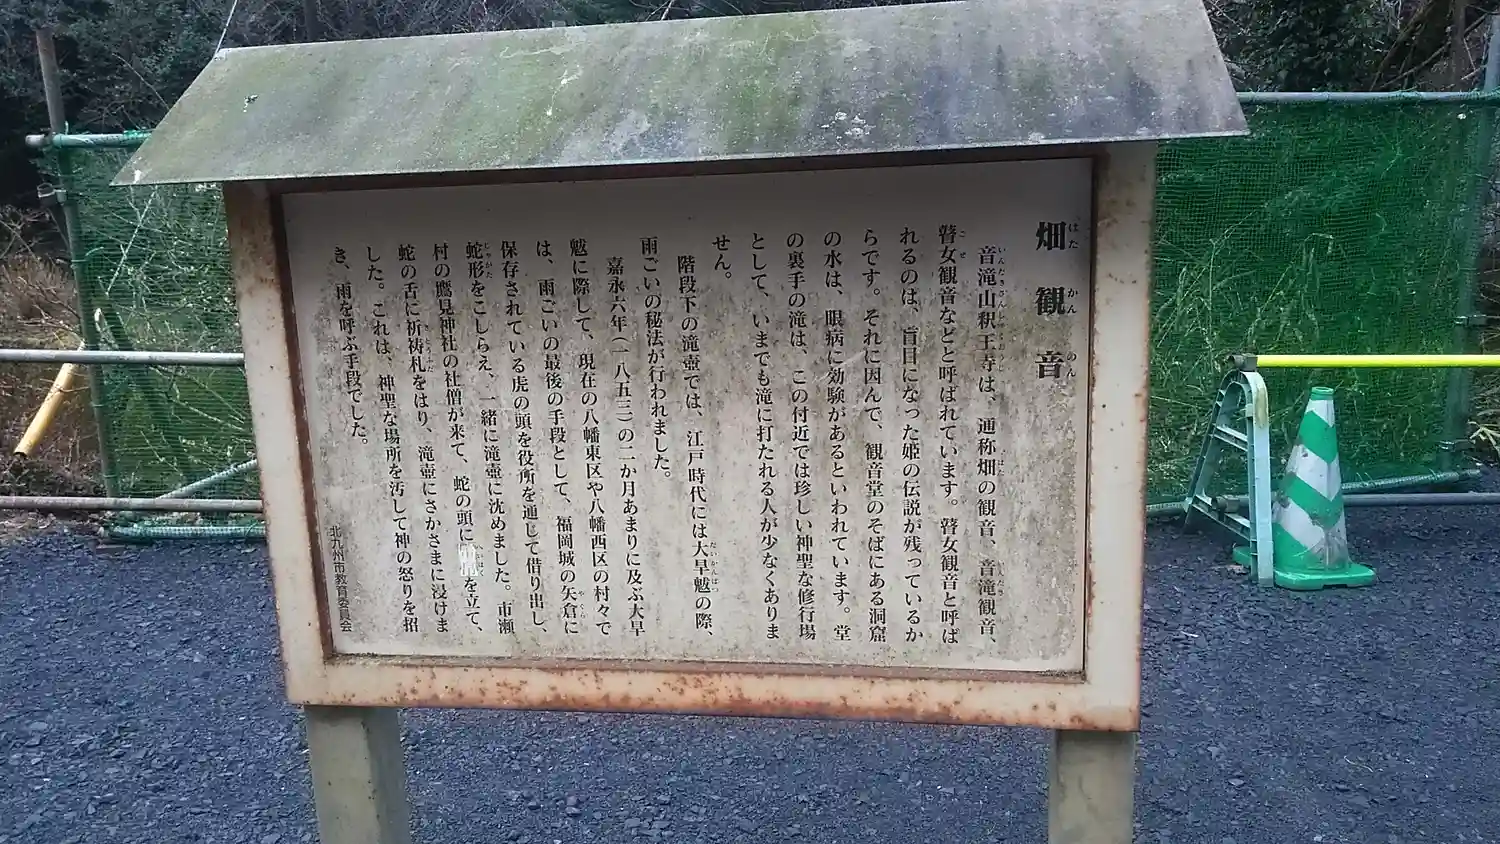 畑観音
はた かん のん
音滝山釈王寺は、通称畑の観音、音滝観音、
瞽女観音などと呼ばれています。瞽女観音と呼ば
れるのは、盲目になった姫の伝説が残っているか
らです。それに因んで、観音堂のそばにある洞窟
の水は、眼病に効験があるといわれています。堂
の裏手の滝は、この付近では珍しい神聖な修行場
として、いまでも滝に打たれる人が少なくありま
せん。
階段下の滝壺では、江戸時代には大旱魃の際、
雨ごいの秘法が行われました。
嘉永六年(一八五三)の二か月あまりに及ぶ大旱
魃に際して、現在の八幡東区や八幡西区の村々で
は、雨ごいの最後の手段として、福岡城の矢倉に
保存されている虎の頭を役所を通じて借り出し、
蛇形をこしらえ、一緒に滝壺に沈めました。市瀬
村の鷹見神社の社僧が来て、蛇の頭に を立て、
蛇の舌に祈祷札をはり、滝壺にさかさまに浸けま
した。これは、神聖な場所を汚して神の怒りを招
き、雨を呼ぶ手段でした。
北九州市教育委員会